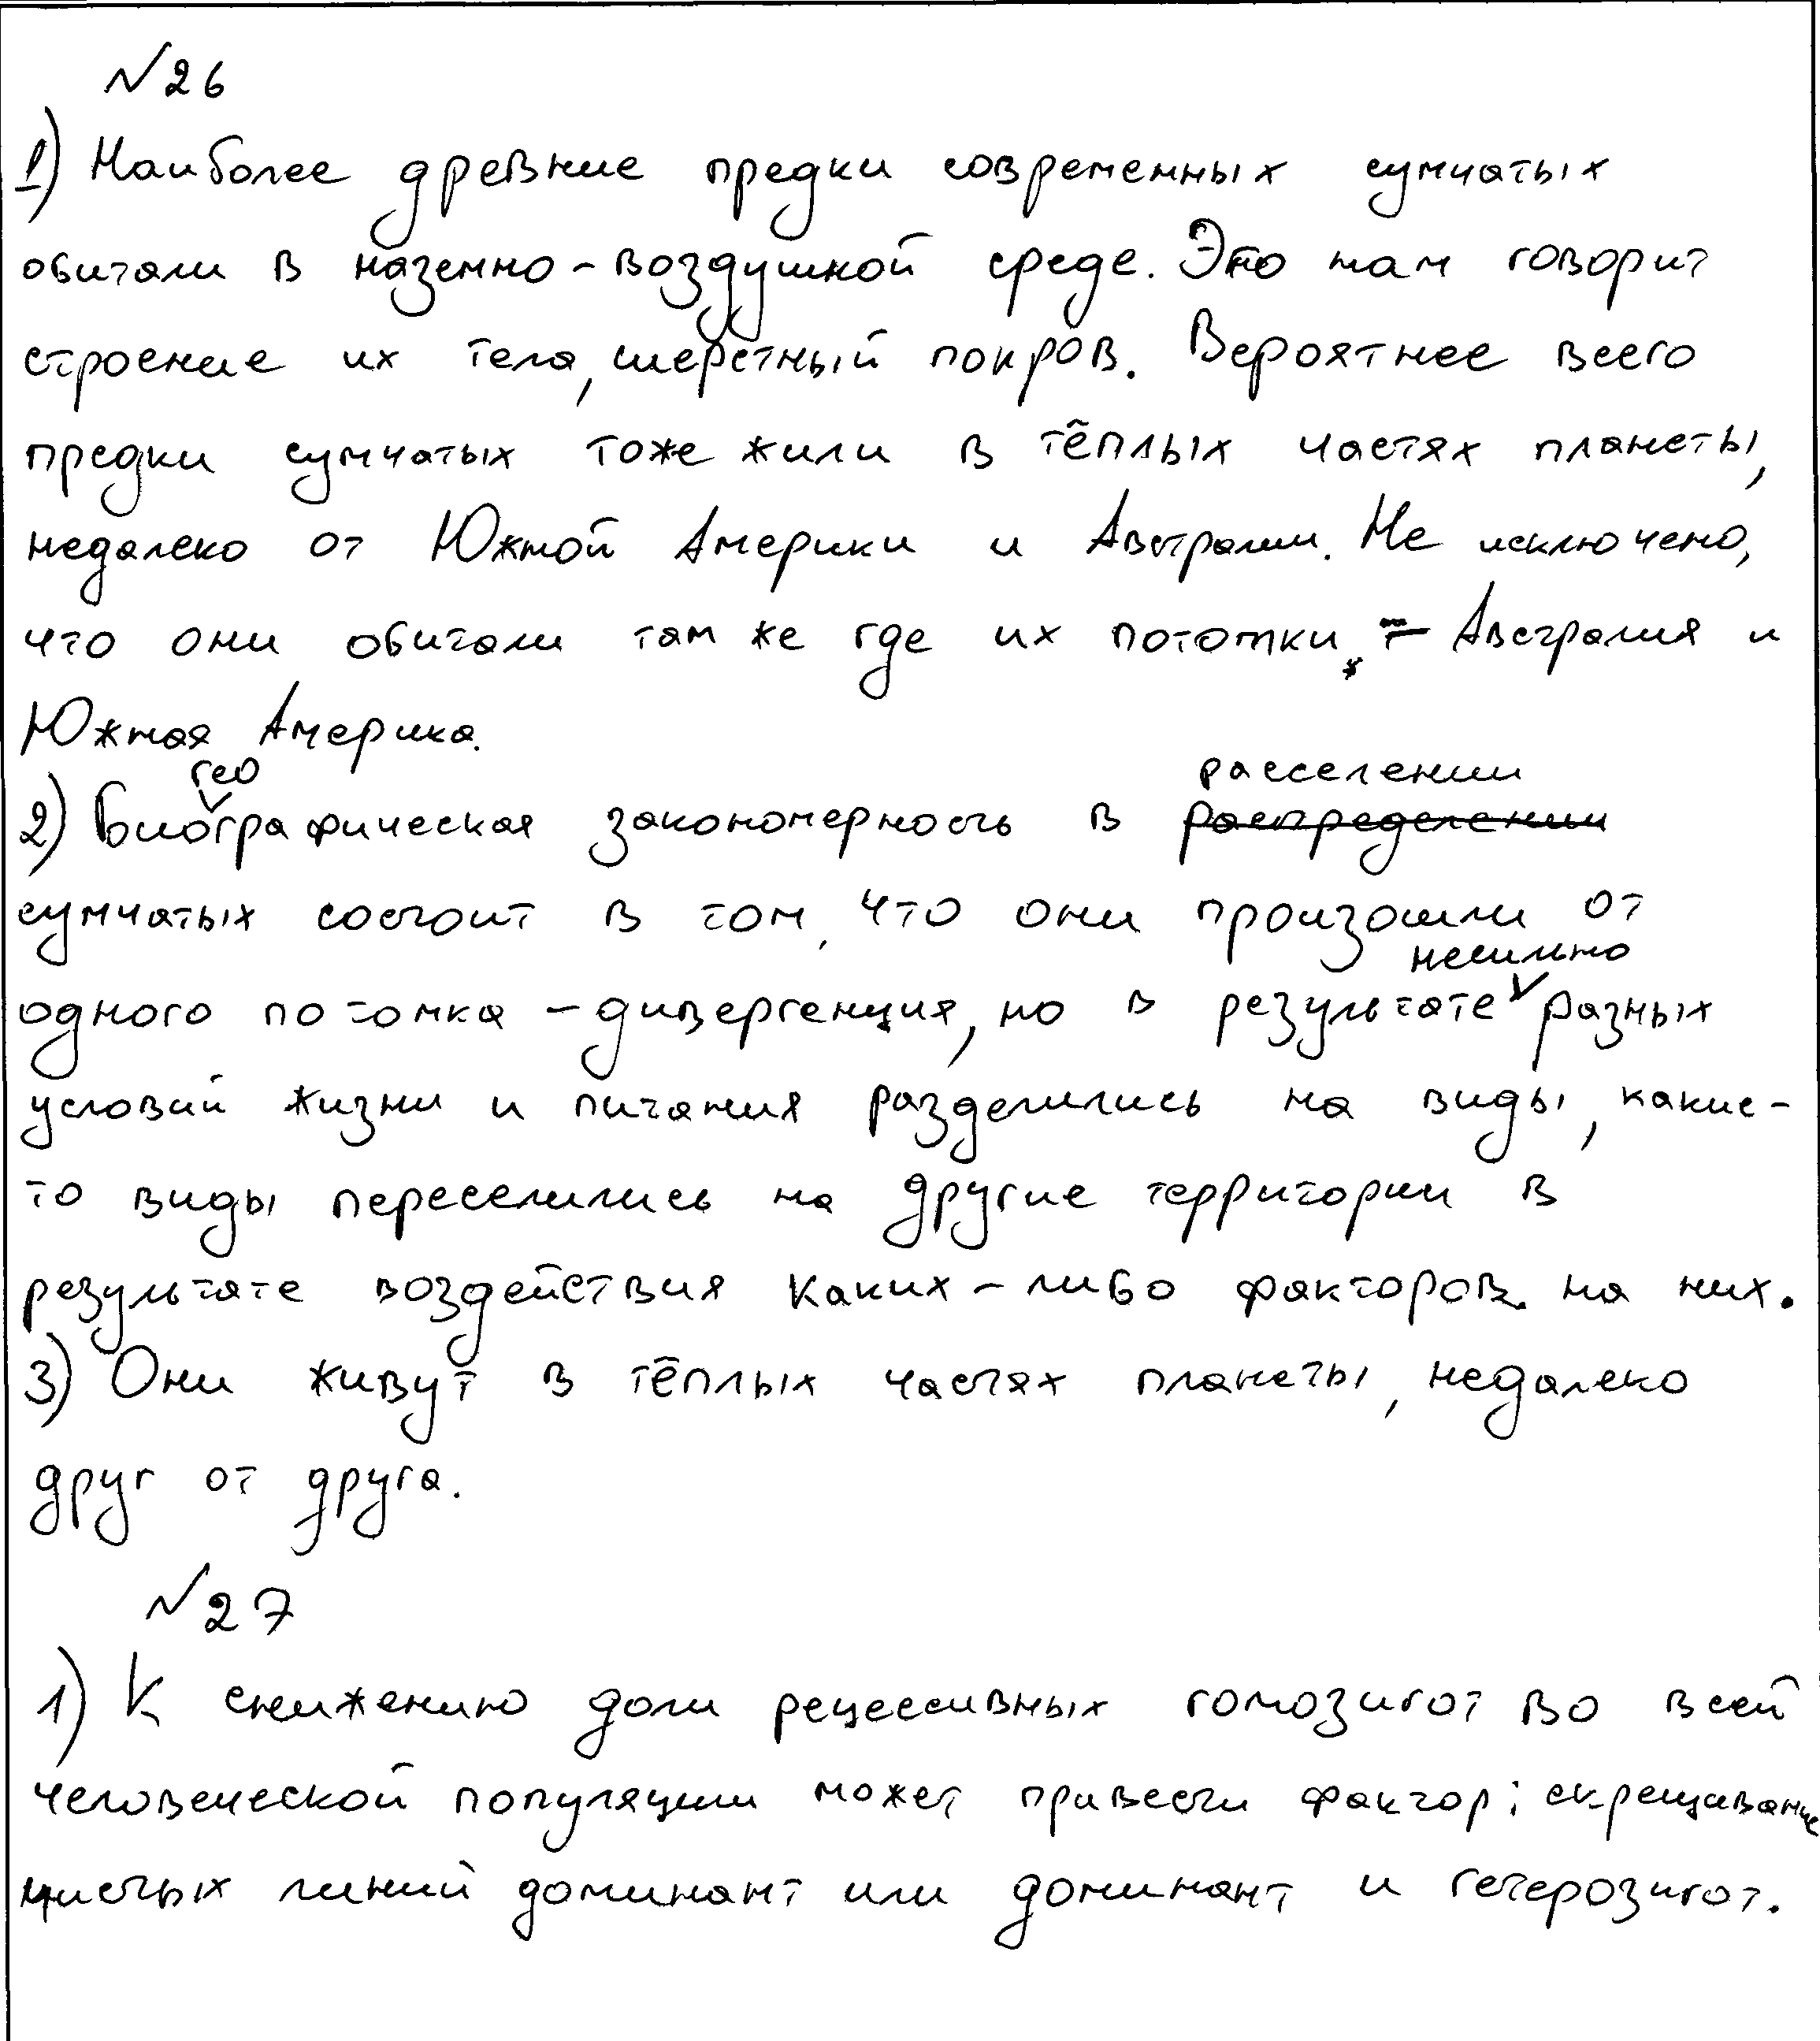 №26
1) Наиболее древние предки современных сумчатых
обитали в наземно-воздушной среде. Это нам говорит
строение их тела, шёрстный покров. Вероятнее всего
предки сумчатых тоже жили в тёплых частях планеты,
недалеко от Южной Америки и Австралии. Не исключено,
что они обитали там же где их потомки. – Австралия и
Южная Америка.
2) Биогеографическая закономерность в ~~распределении~~ расселении
сумчатых состоит в том, что они произошли от
одного потомка – дивергенция, но в результате несильно разных
условий жизни и питания разделились на виды, какие-
то виды переселились на другие территории в
результате воздействия каких-либо факторов на них.
3) Они живут в тёплых частях планеты, недалеко
друг от друга.
№27
1) К снижению доли рецессивных гомозигот во всей
человеческой популяции может привести фактор: скрещивание
чистых линий доминант или доминант и гетерозигот.